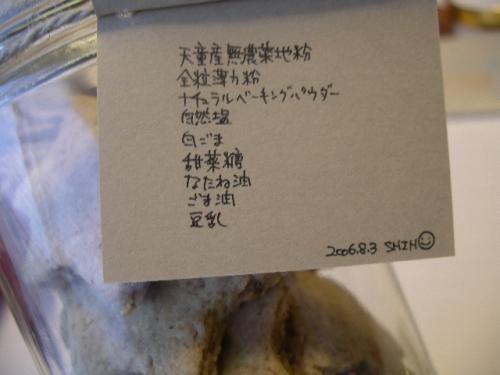 天童産無農薬地粉
全粒薄力粉
ナチュラルベーキングパウダー
自然塩
白ごま
甜菜糖
なたね油
ごま油
豆乳
2006.8.3 SHIH